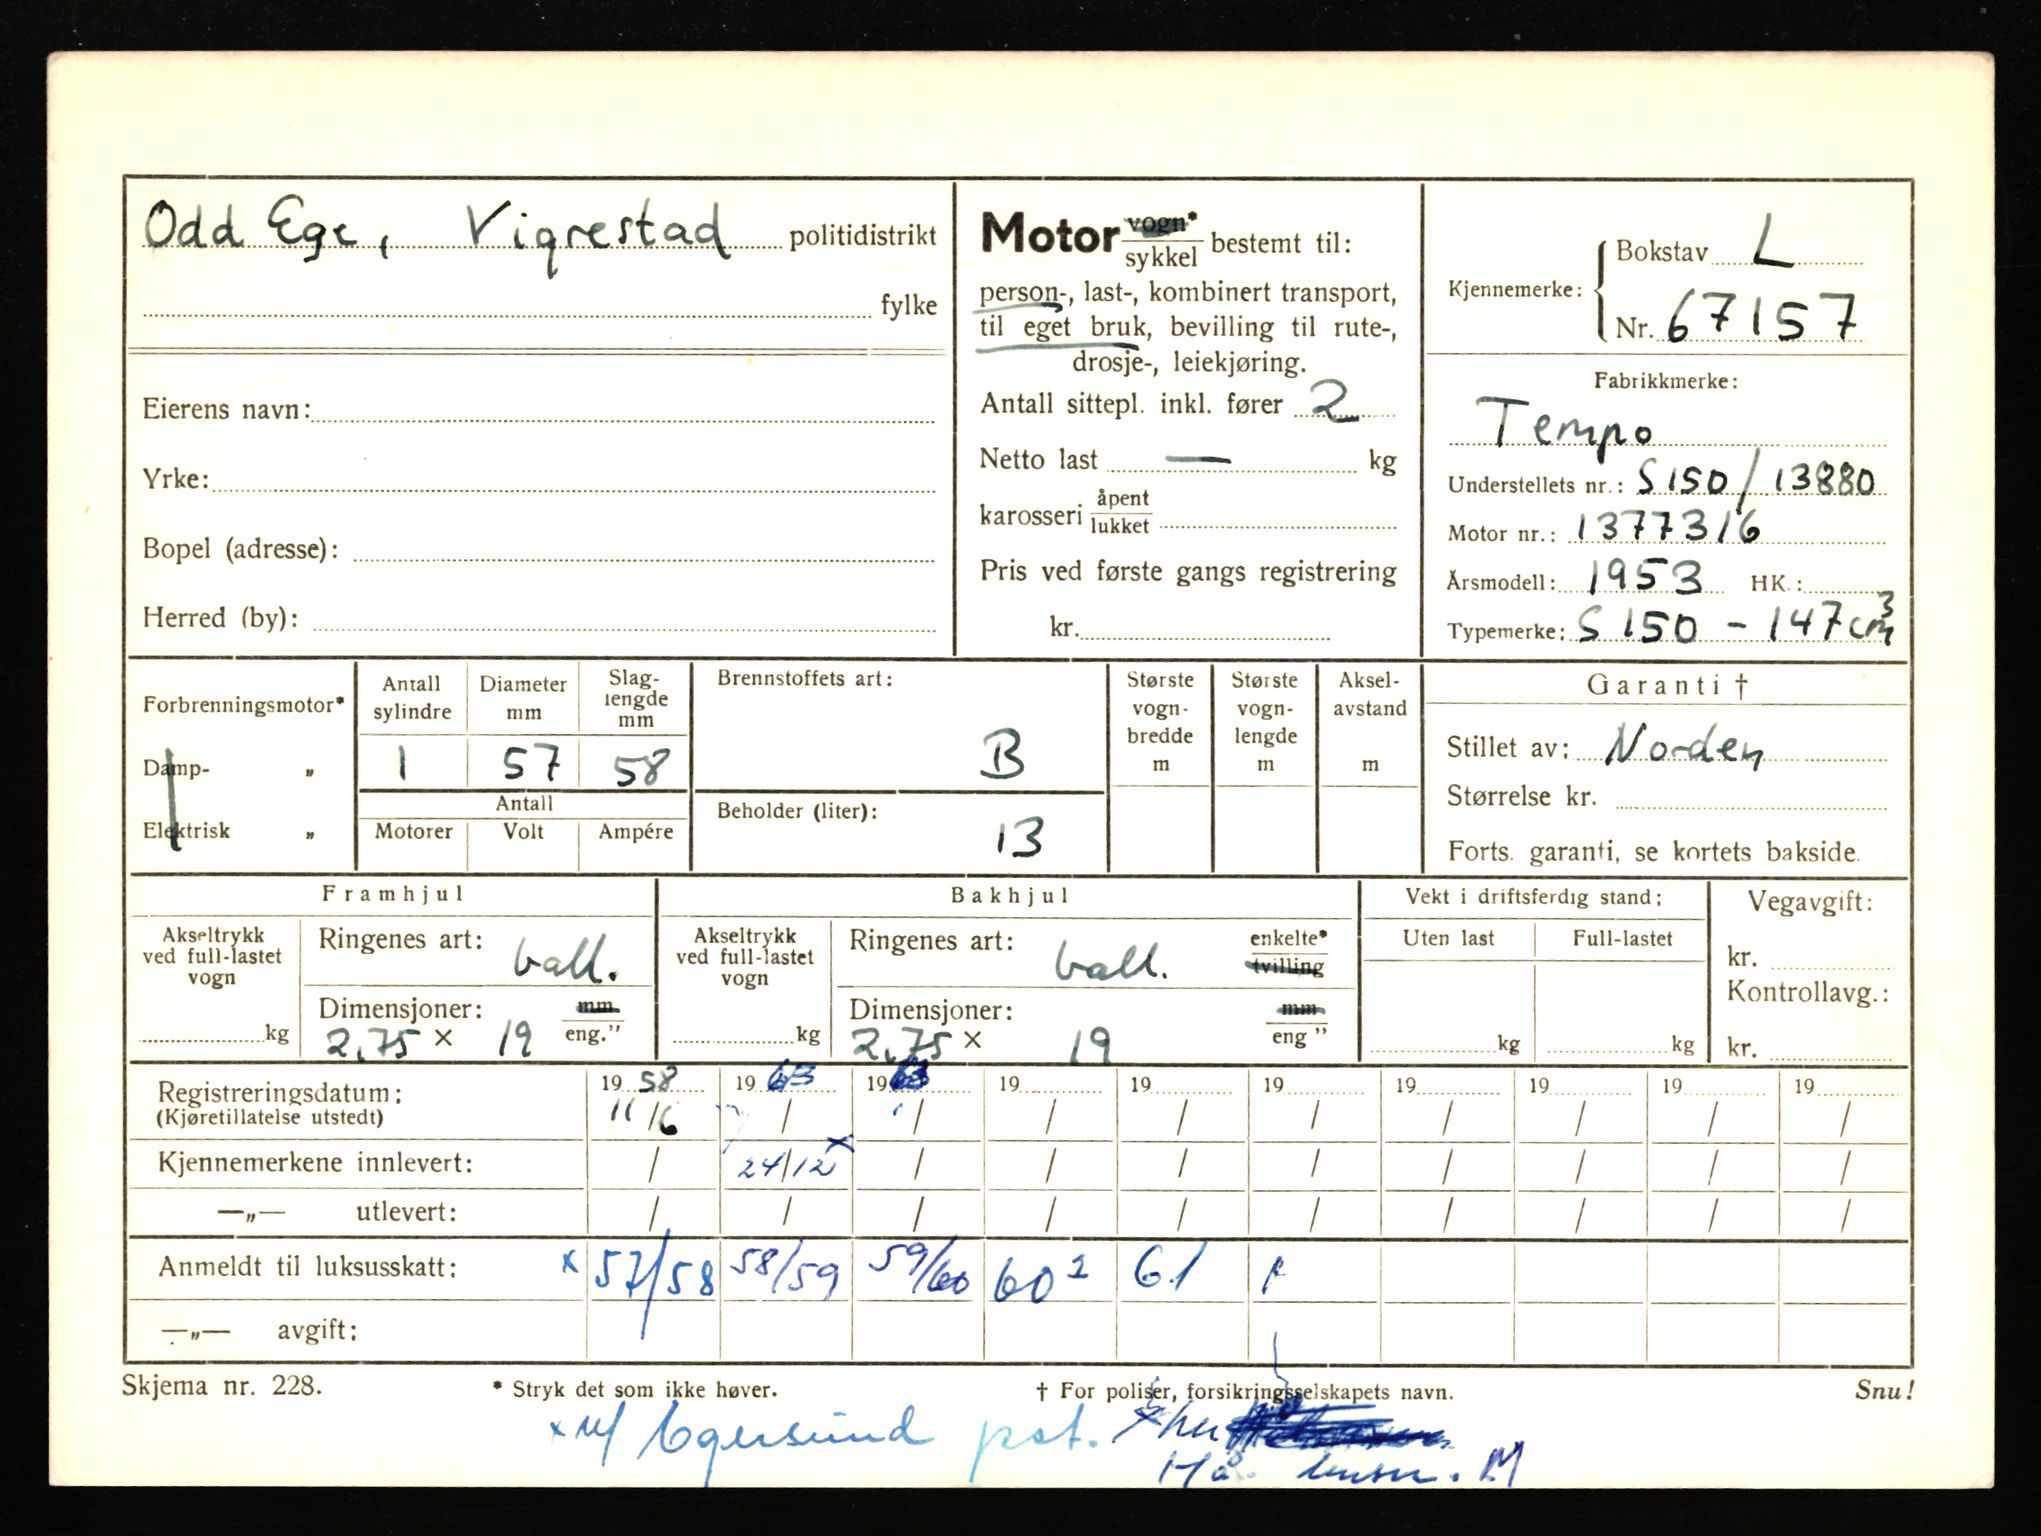 Odd Ege, Vigrestad politidistrikt
fylke
Eierens navn:
Yrke:
Bopel (adresse):
Herred (by):
Motor vogn* / sykkel bestemt til:
person-, last-, kombinert transport,
til eget bruk, bevilling til rute-,
drosje-, leiekjøring.
Antall sittepl. inkl. fører 2
Netto last — kg
karosseri åpent / lukket
Pris ved første gangs registrering
kr.
Kjennemerke: Bokstav L
Nr. 67157
Fabrikkmerke:
Tempo
Understellets nr.: S150/13880
Motor nr.: 1377316
Årsmodell: 1953 HK.:
Typemerke: S150 - 147 cm³
Forbrenningsmotor*
Damp- „
Elektrisk „
Antall sylindre Diameter mm Slaglengde mm
1 57 58
Antall
Motorer Volt Ampére
Brennstoffets art:
B
Beholder (liter):
13
Største vognbredde m
Største vognlengde m
Akselavstand m
Garanti †
Stillet av: Norden
Størrelse kr.
Forts. garanti, se kortets bakside.
Framhjul
Akseltrykk ved full-lastet vogn
kg
Ringenes art: ball.
Dimensjoner: mm
2.75 × 19 eng.”
Bakhjul
Akseltrykk ved full-lastet vogn
kg
Ringenes art: ball. enkelte* tvilling
Dimensjoner: mm
2.75 × 19 eng ”
Vekt i driftsferdig stand:
Uten last Full-lastet
kg kg
Vegavgift:
kr.
Kontrollavg.:
kr.
Registreringsdatum: 19 58 19 63 19 63 19 19 19 19 19 19 19
(Kjøretillatelse utstedt) 11/6 / / / / / / / / /
Kjennemerkene innlevert: / 24/12 x / / / / / / / /
—„— utlevert: / / / / / / / / / /
Anmeldt til luksusskatt: x 57/58 58/59 59/60 60² 61
—„— avgift:
Skjema nr. 228. * Stryk det som ikke høver. † For poliser, forsikringsselskapets navn. Snu!
x Egersund pst.
Hå